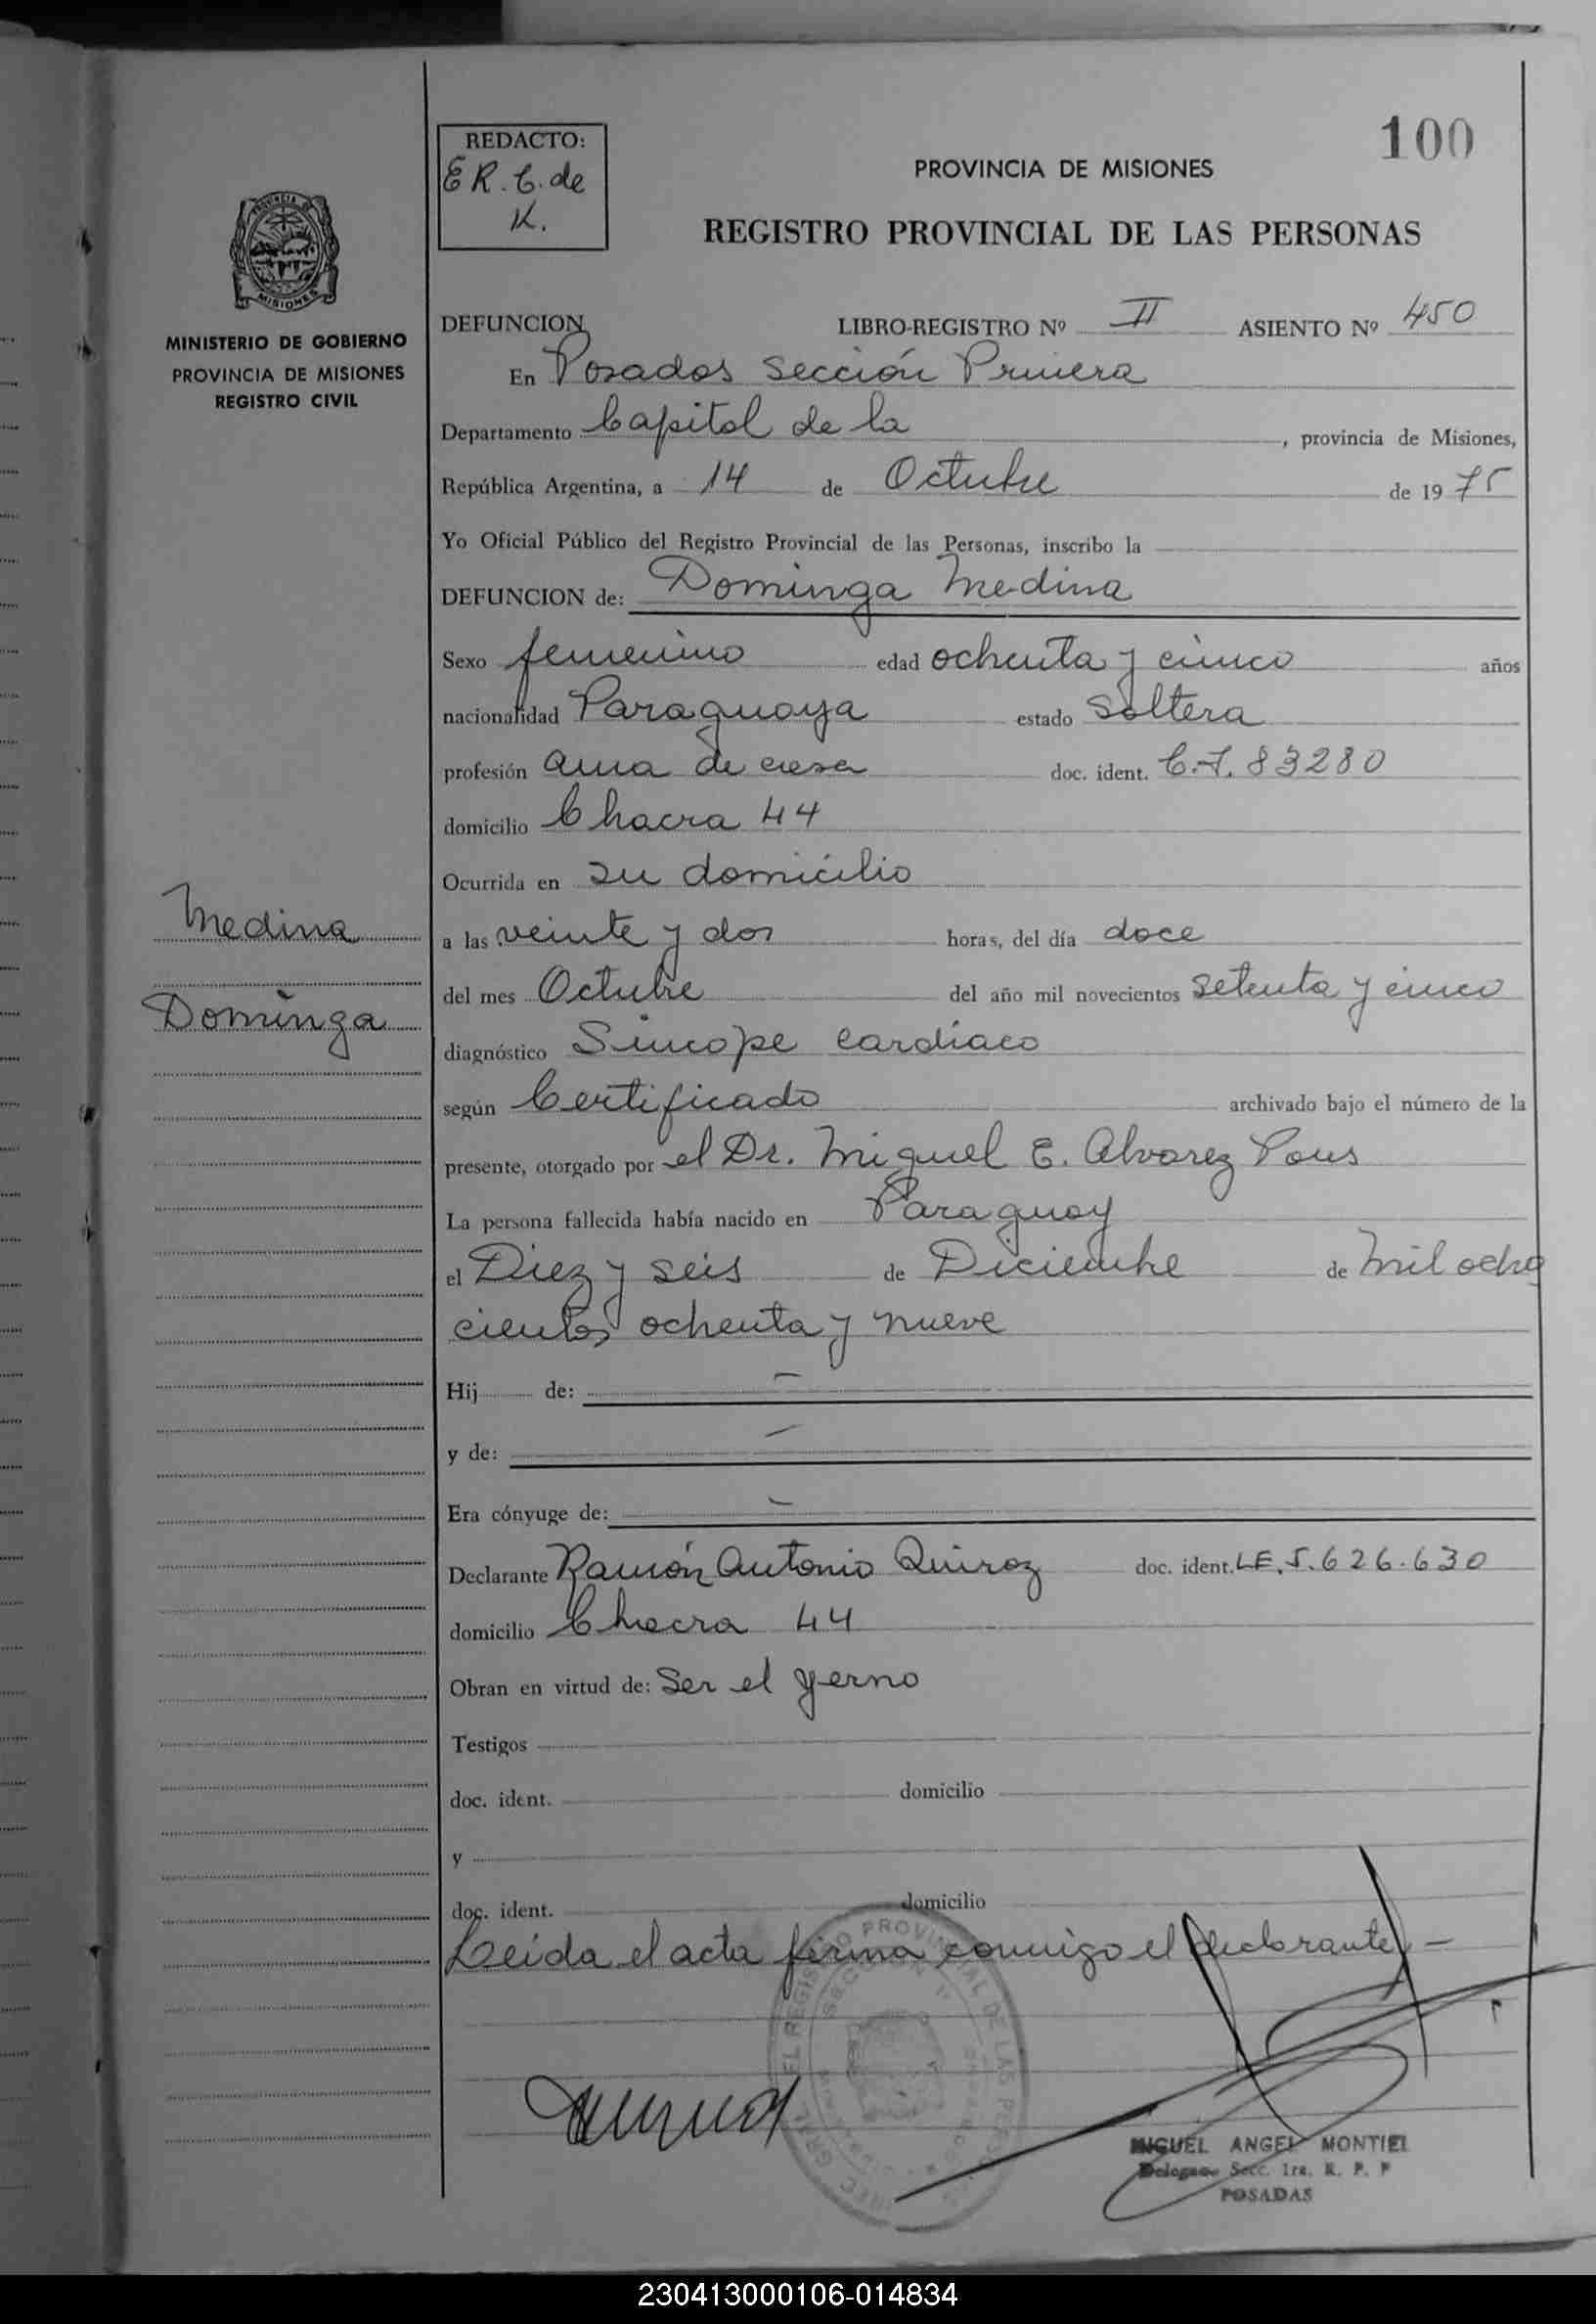 100
REDACTO:
E R. C. de
K.
PROVINCIA DE MISIONES
REGISTRO PROVINCIAL DE LAS PERSONAS
MINISTERIO DE GOBIERNO
PROVINCIA DE MISIONES
REGISTRO CIVIL
DEFUNCION LIBRO-REGISTRO Nº II ASIENTO Nº 450
En Posadas Sección Primera
Departamento Capital de la, provincia de Misiones,
República Argentina, a 14 de Octubre de 1975
Yo Oficial Público del Registro Provincial de las Personas, inscribo la
DEFUNCION de: Dominga Medina
Sexo femenino edad ochenta y cinco años
nacionalidad Paraguaya estado Soltera
profesión ama de casa doc. ident. C.I. 83280
domicilio Chacra 44
Ocurrida en su domicilio
Medina
a las veinte y dos horas, del día doce
del mes Octubre del año mil novecientos setenta y cinco
Dominga
diagnóstico Sincope cardíaco
según Certificado archivado bajo el número de la
presente, otorgado por el Dr. Miguel E. Alvarez Pous
La persona fallecida había nacido en Paraguay
el Diez y seis de Diciembre de Mil ocho
cientos ochenta y nueve
Hij de: —
y de: —
Era cónyuge de: —
Declarante Ramón Antonio Quiroz doc. ident. LE. 5.626.630
domicilio Chacra 44
Obran en virtud de: Ser el yerno
Testigos
doc. ident. domicilio
y
doc. ident. domicilio
Leída el acta firma conmigo el declarante. —
MIGUEL ANGEL MONTIEL
Delegado Secc. 1ra. R. P. P
POSADAS
230413000106-014834